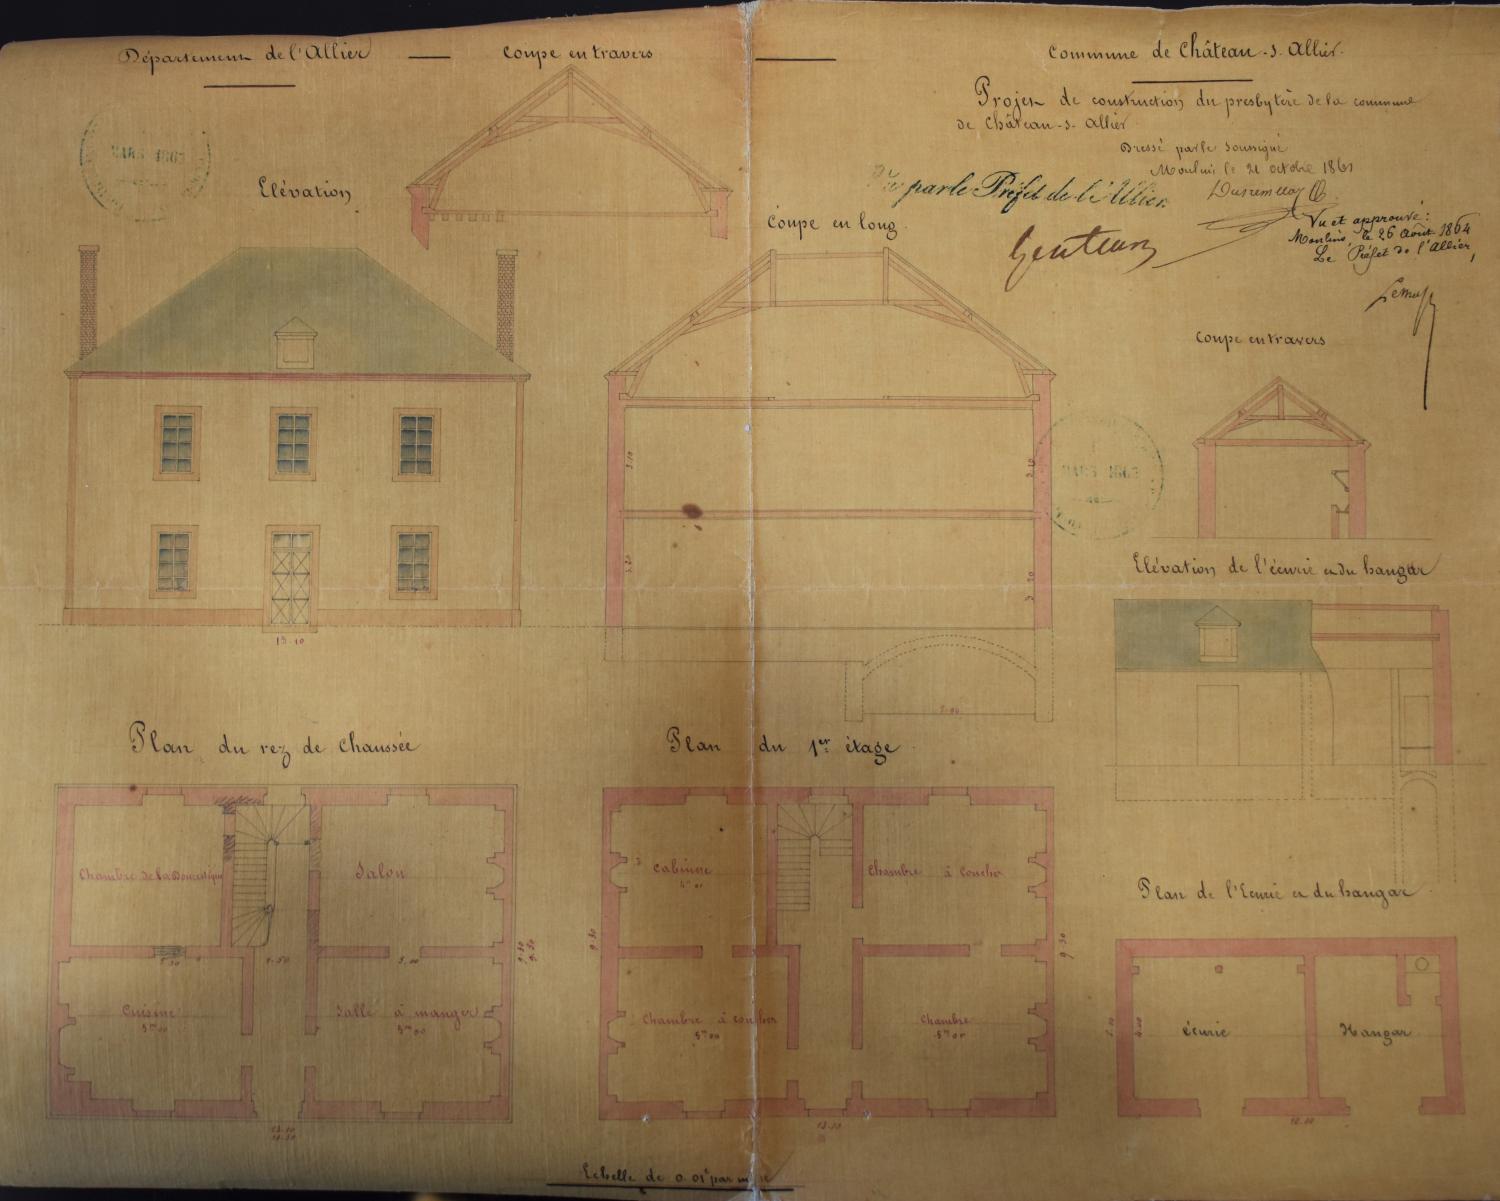 Département de l'Allier — Coupe en travers — Commune de Château-s-Allier.
Projet de construction du presbytère de la commune
de Château-s-Allier
Dressé par le soussigné
Moulins le 21 octobre 1861
Vu par le Préfet de l'Allier
Vu et approuvé:
Moulins, le 26 Août 1864
Le Préfet de l'Allier,
MARS 1863
Elévation
Coupe en long
Coupe en travers
3.20
MARS 1863
Elévation de l'écurie et du hangar
13.10
Plan du rez de Chaussée
Plan du 1er étage
Chambre de la Domestique
Salon
Cabinet
Chambre à Coucher
Plan de l'Ecurie et du hangar
9.50
9.50
9.50
5.00
Cuisine
5m00
Salle à manger
5m00
Chambre à coucher
5m00
Chambre
écurie
Hangar
13.10
13.10
12.00
Echelle de 0.01c par mètre